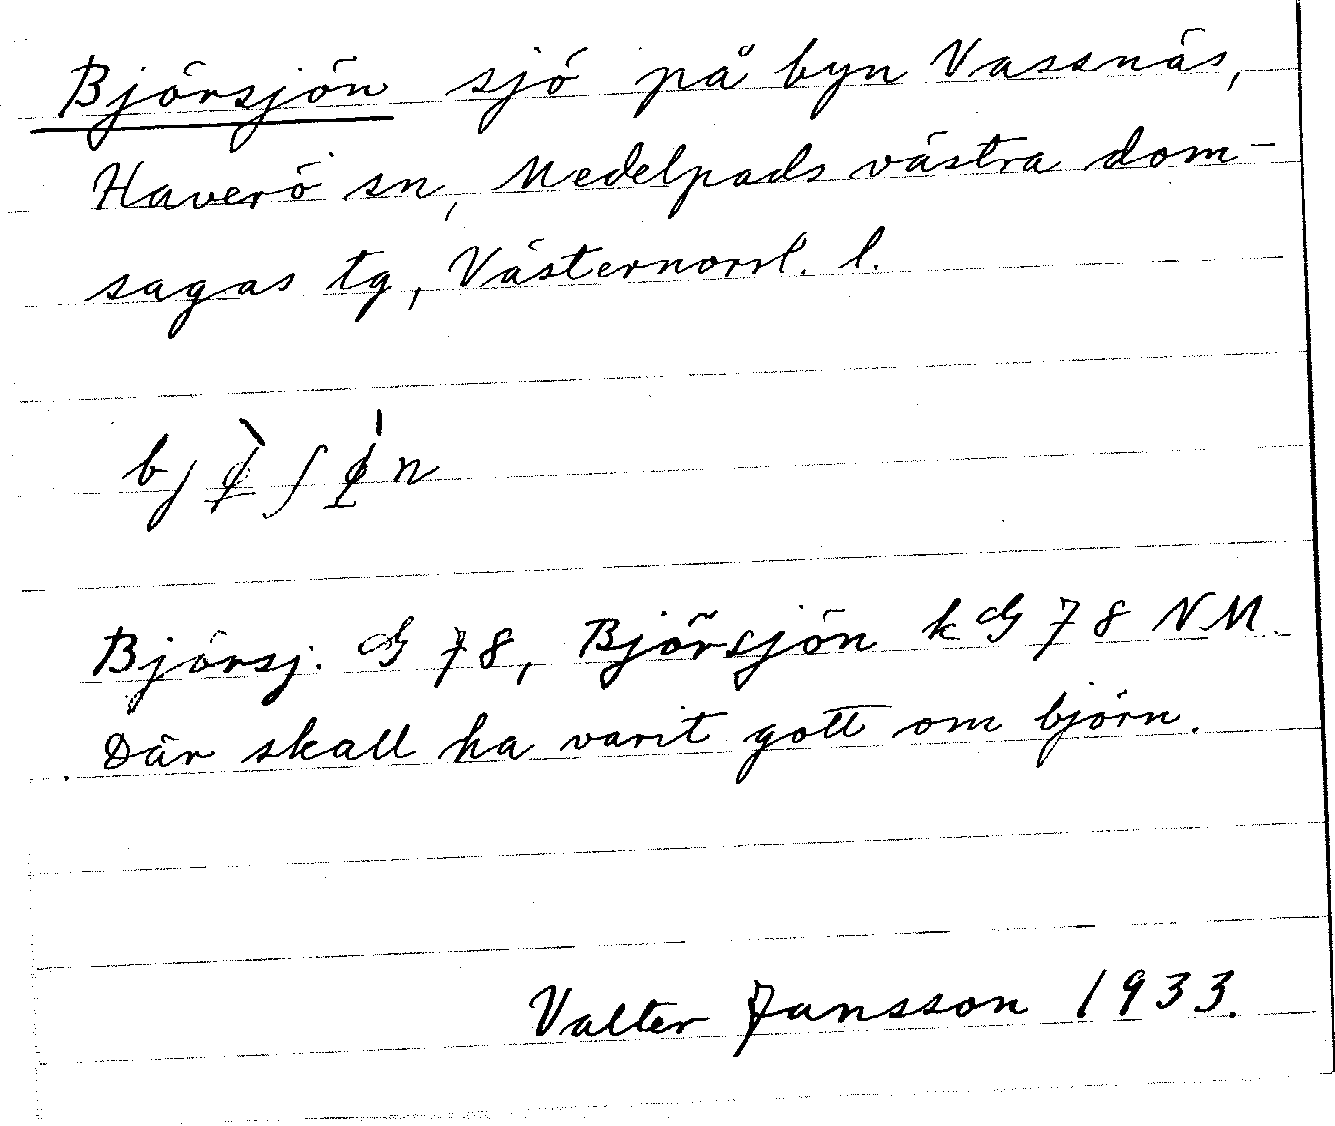 Björsjön sjö på byn Vassnäs,
Haverö sn, Medelpads västra dom-
sagas tg, Västernorrl. l.
Björsj. G 78, Björsjön k G 78 NM.
Där skall ha varit gott om björn.
Valter Jansson 1933.